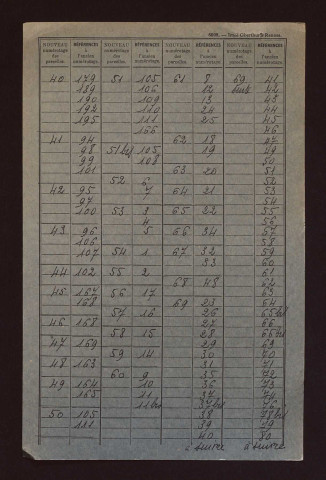 NOUVEAU numérotage des parcelles. RÉFÉRENCES à l'ancien numérotage. NOUVEAU numérotage des parcelles. RÉFÉRENCES à l'ancien numérotage. NOUVEAU numérotage des parcelles. RÉFÉRENCES à l'ancien numérotage. NOUVEAU numérotage des parcelles. RÉFÉRENCES à l'ancien numérotage.
40 179 51 105 61 8 69 41
189 106 12 42
190 109 13 43
192 110 24 44
195 111 25 45
166 46
41 94 62 18 47
98 51 bis 105 19 49
99 108 50
101 63 20 51
52 6 52
42 95 7 64 21 53
97 54
100 53 3 65 22 55
4 56
43 96 5 66 34 57
106 58
107 54 1 67 32 59
33 60
44 102 55 2 61
68 48 62
45 167 56 17 63
168 69 23 64
57 16 26 65 bis
46 168 27 66
58 15 28
47 169 29 69
59 14 30 70
48 163 31 71
60 9 35 72
49 164 10 36 73
165 11 37 74
11 bis 37 bis
50 105 38 78 bis
111 39 79
40 80
à suivre à suivre